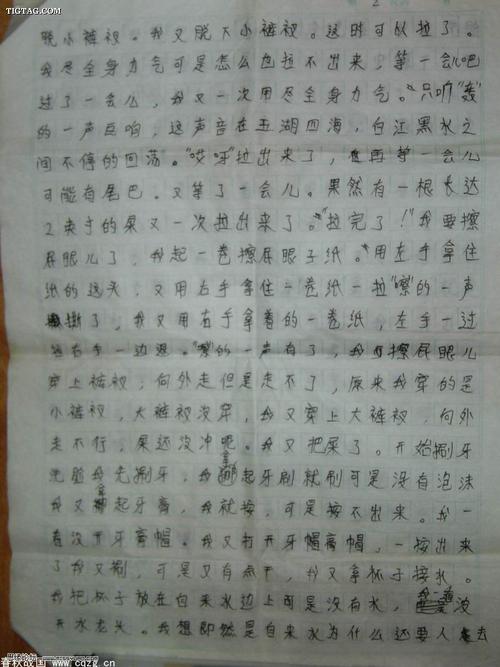 TIGTAG.COM
2
脱小裤衩。我又脱大小裤衩。这时可以拉了。
我尽全身力气可是怎么也拉不出来，等一会儿吧
过了一会儿，我又一次用尽全身力气。只听"轰"
的一声巨响，这声音在五湖四海，白江黑水之
间不停的回荡。"哎呀"拉出来了，再等一会儿
可能有尾巴。又等了一会儿。果然有一根长达
2来寸的屎又一次拉出来了。"拉完了！"我要擦
屁眼儿了，我起一卷擦屁眼子纸。用左手拿住
纸的这头，又用右手拿住一卷纸一拉"嚓"的一声
撕了，我又用右手拿着的一卷纸，左手一过
右手一边退。"嚓"的一声有了，我可擦屁眼儿
穿上裤衩，向外走但是走不了，原来我穿的是
小裤衩，大裤衩没穿，我又穿上大裤衩，向外
走不行，屎还没冲呢。我又把屎了。开始刷牙
洗脸我先刷牙，我拿起牙刷就刷可是没有泡沫
我又拿起牙膏，我就按，可是按不出来。我一
看没开牙膏帽。我又打开牙帽膏帽，一按出来
了我又刷，可是又有点干，我又拿杯子接水。
我把杯子放在自来水边上可是没有水，我一看没
开水龙头。我想即然是自来水为什么还要人去
春秋战国 www.cqzg.cn